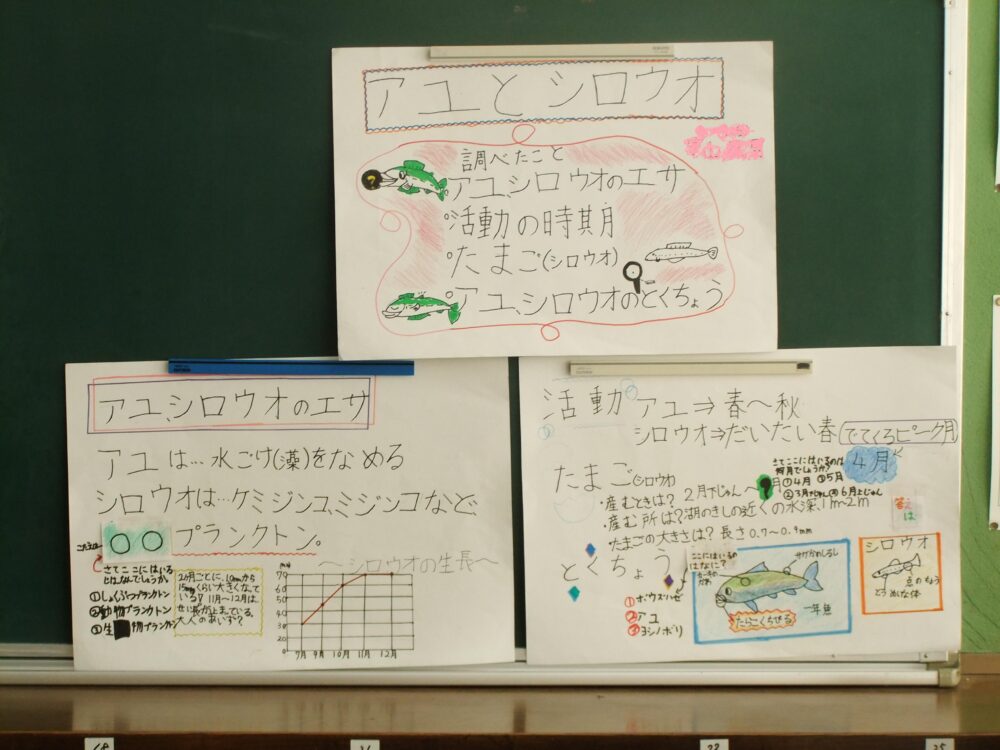 アユとシロウオ
調べたこと
アユ、シロウオのエサ
活動の時期
たまご(シロウオ)
アユ、シロウオのとくちょう
アユ、シロウオのエサ
アユは…水ごけ(藻)をなめる
シロウオは…ケミジンコ、ミジンコなど
○○プランクトン。
さてここにはいる
とはなんでしょうか。
①しょくぶつプランクトン
②動物プランクトン
③生物プランクトン
2か月ごとに、10mmから
15mmくらい大きくなって
いる? 11月〜12月は
せい長が止まっている。
大人のあいず?
〜シロウオの生長〜
70
60
50
40
30
20
10
0
7月 9月 10月 11月 12月
活動 アユ⇒春〜秋
シロウオ⇒だいたい春 でてくるピーク月
4月
さてここにはいるのは
何月でしょうか?
①4月 ③5月
②3月下じゅん ④6月上じゅん
答えは
たまご(シロウオ)
・産むときは? 2月下じゅん〜?月
・産む所は?湖のきしの近くの水深、1m〜2m
・たまごの大きさは? 長さ0.7〜0.9mm
とくちょう
ここにはいるの
はなに?
①ボウズハゼ
②アユ
③ヨシノボリ
たらこくちびる
一年魚
シロウオ
点のもよう
とうめいな体